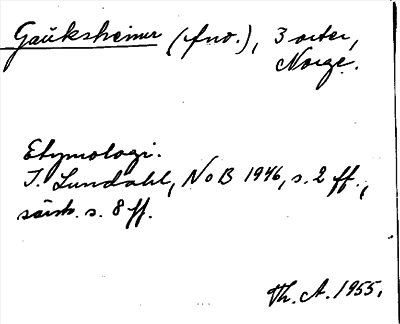 Gaŭksheimr (fno.), 3 orter,
Norge.
Etymologi.
I. Lundahl, NoB 1946, s. 2 ff.,
särsk. s. 8 ff.
Th. A. 1955.